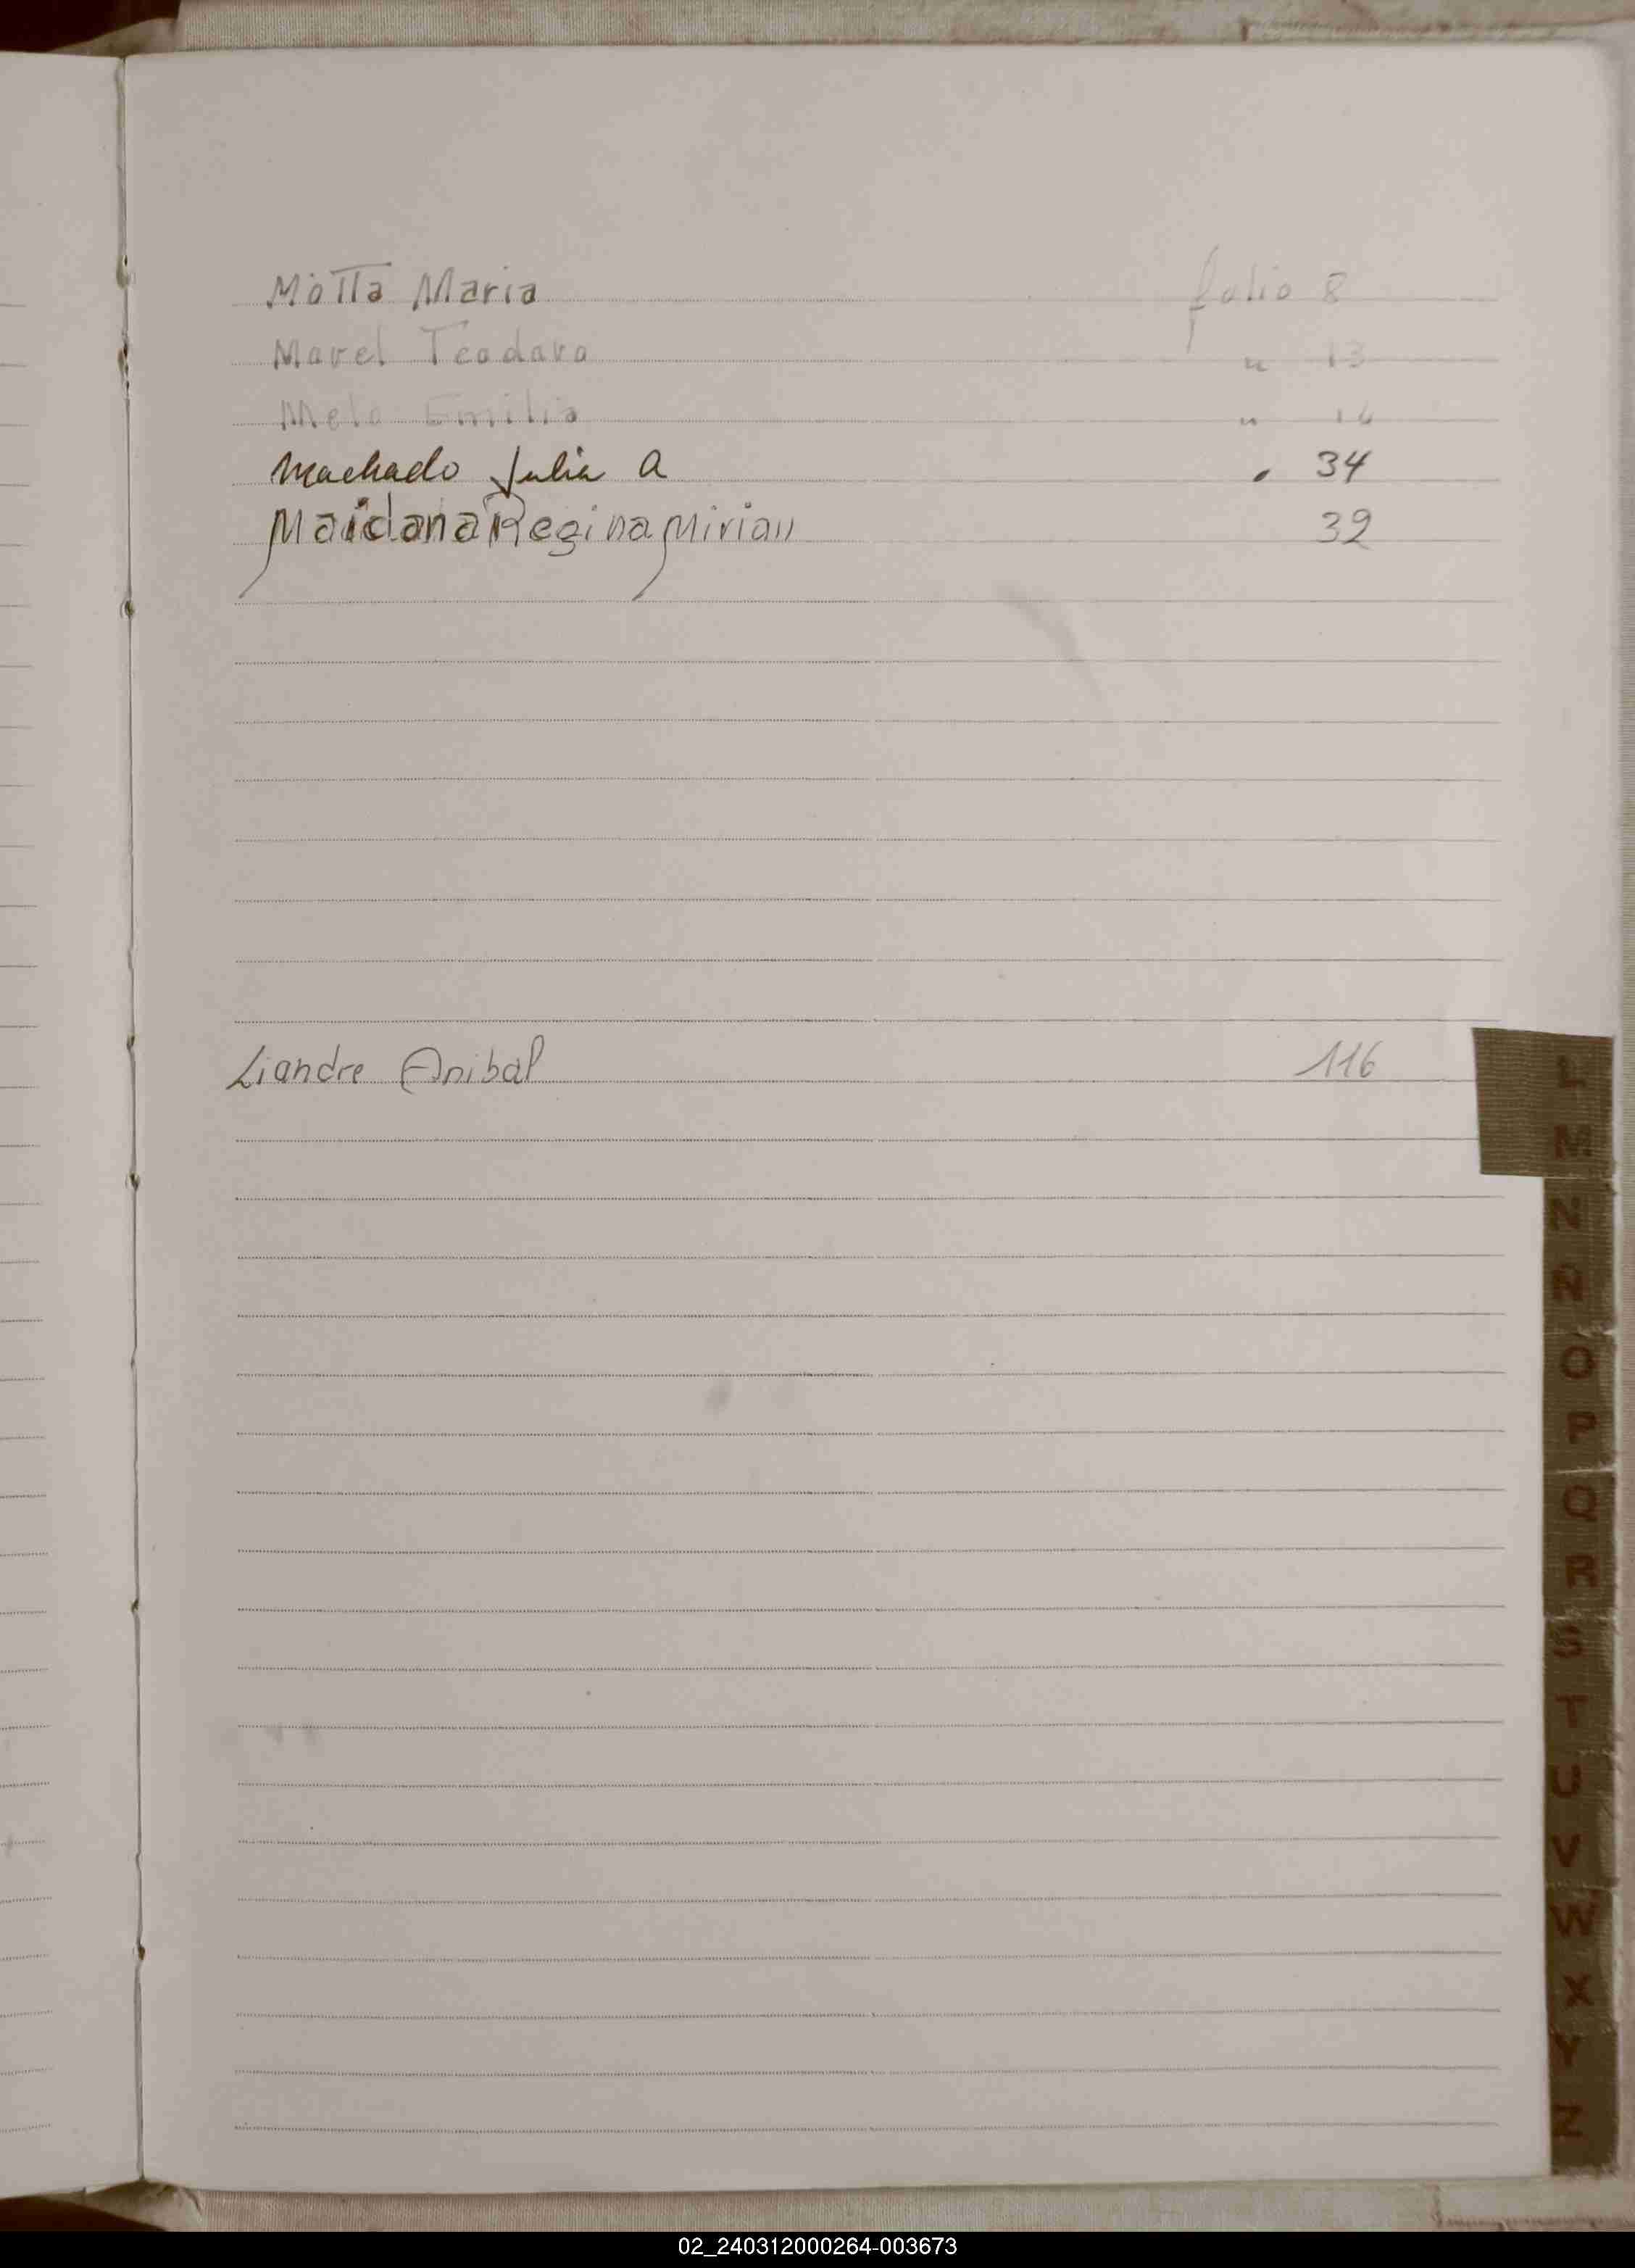 Motta Maria folio 8
Marel Teodara " 13
Melo Emilia " 14
Machado Julia A " 34
Maidana Regina Mirian 39
Liandre Anibal 116
L
M
N
Ñ
O
P
Q
R
S
T
U
V
W
X
Y
Z
02_240312000264-003673